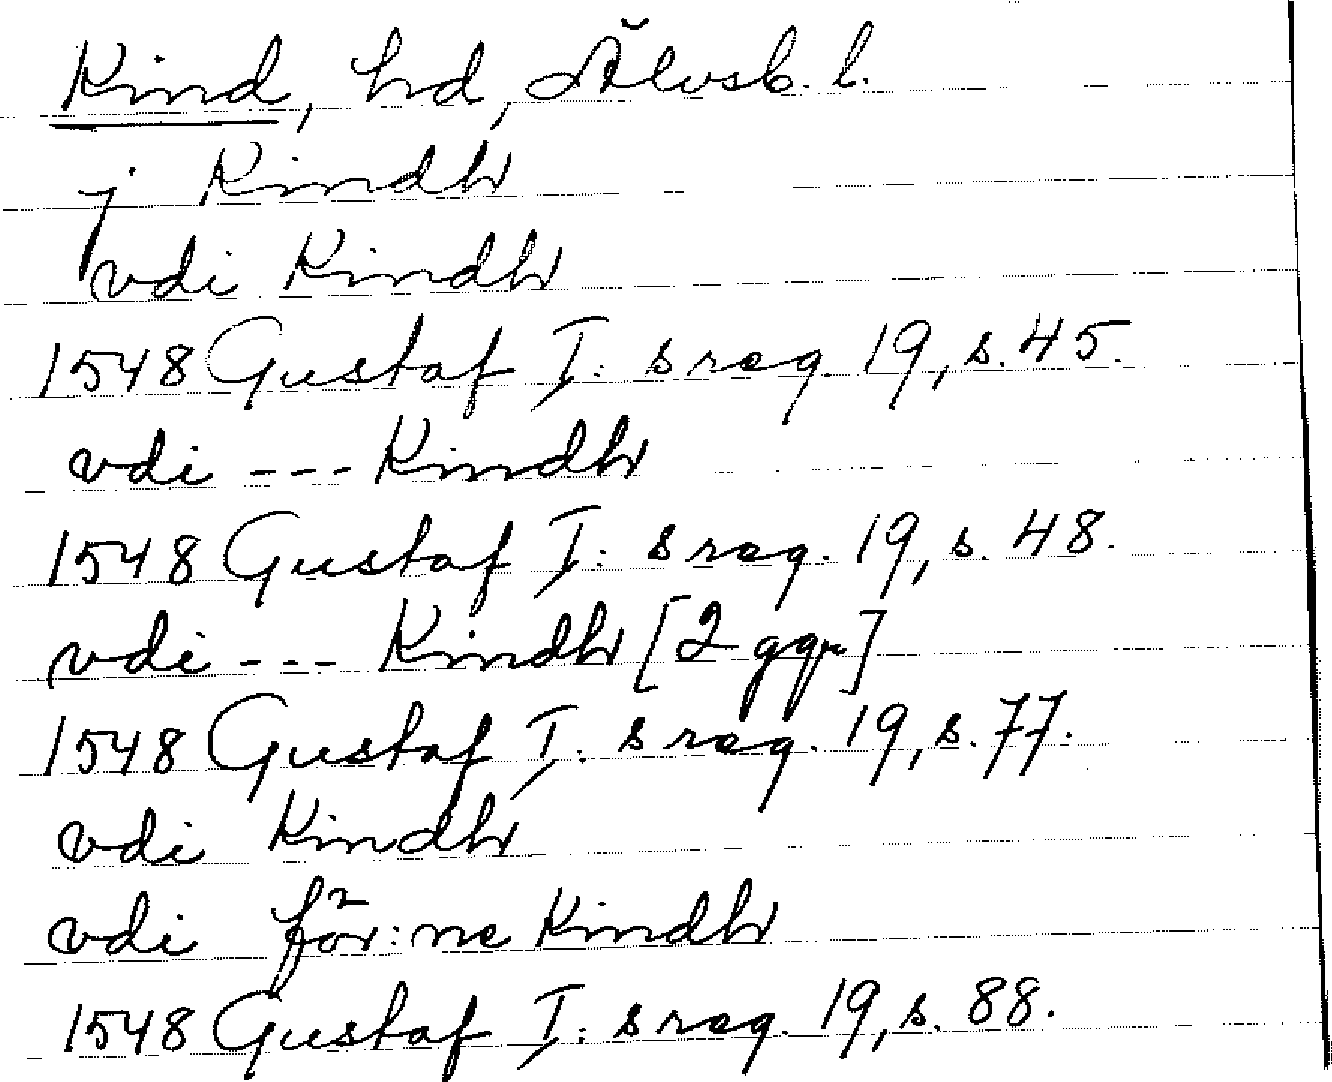 Kind, hd, Älvsb. l.
j Kindh
vdi Kindh
1548 Gustaf I: s reg. 19, s. 45.
vdi --- Kindh
1548 Gustaf I: s reg. 19, s. 48.
vdi --- Kindh [2 ggr]
1548 Gustaf I: s reg. 19, s. 77.
vdi Kindh
vdi för:ne Kindh
1548 Gustaf I: s reg. 19, s. 88.